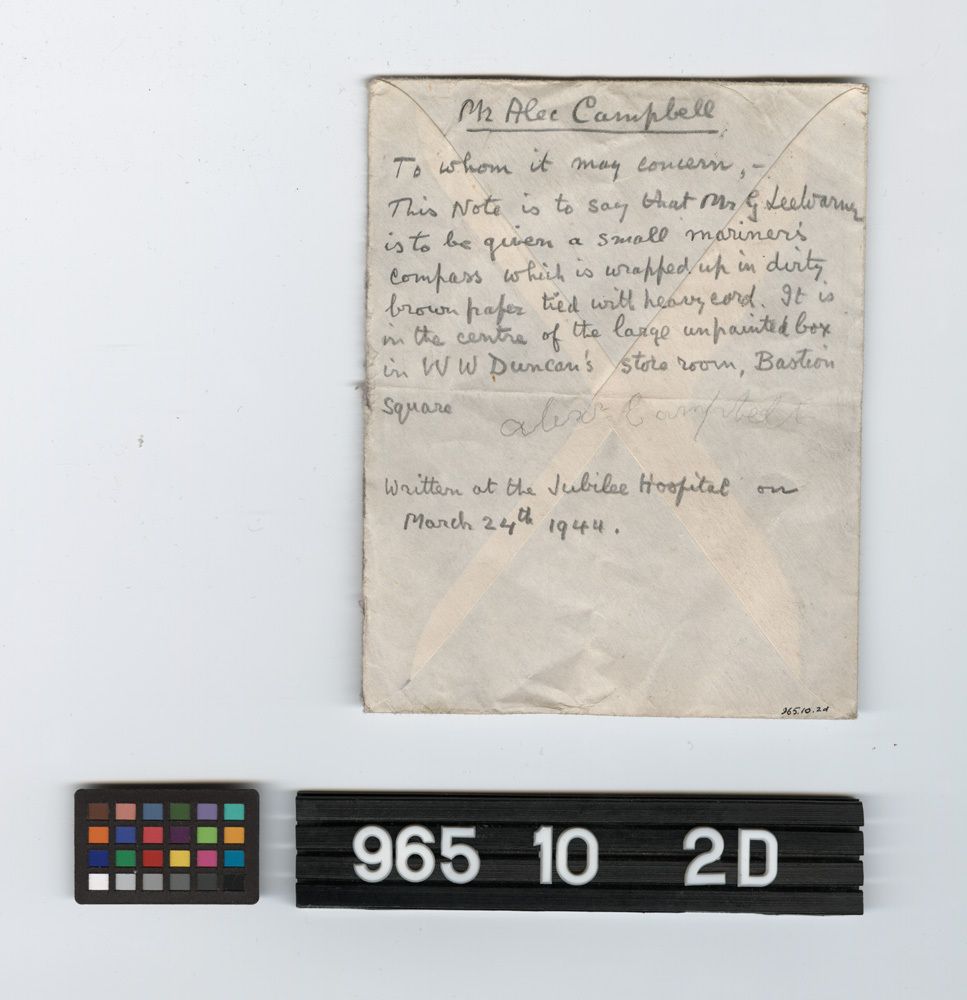 Mr Alec Campbell
To whom it may concern,-
This Note is to say that Mr G Leewarner
is to be given a small mariner's
compass which is wrapped up in dirty
brown paper tied with heavy cord. It is
in the centre of the large unpainted box
in W W Duncan's store room, Bastion
Square
Alex Campbell
Written at the Jubilee Hospital on
March 24th 1944.
965.10.2d
965 10 2D